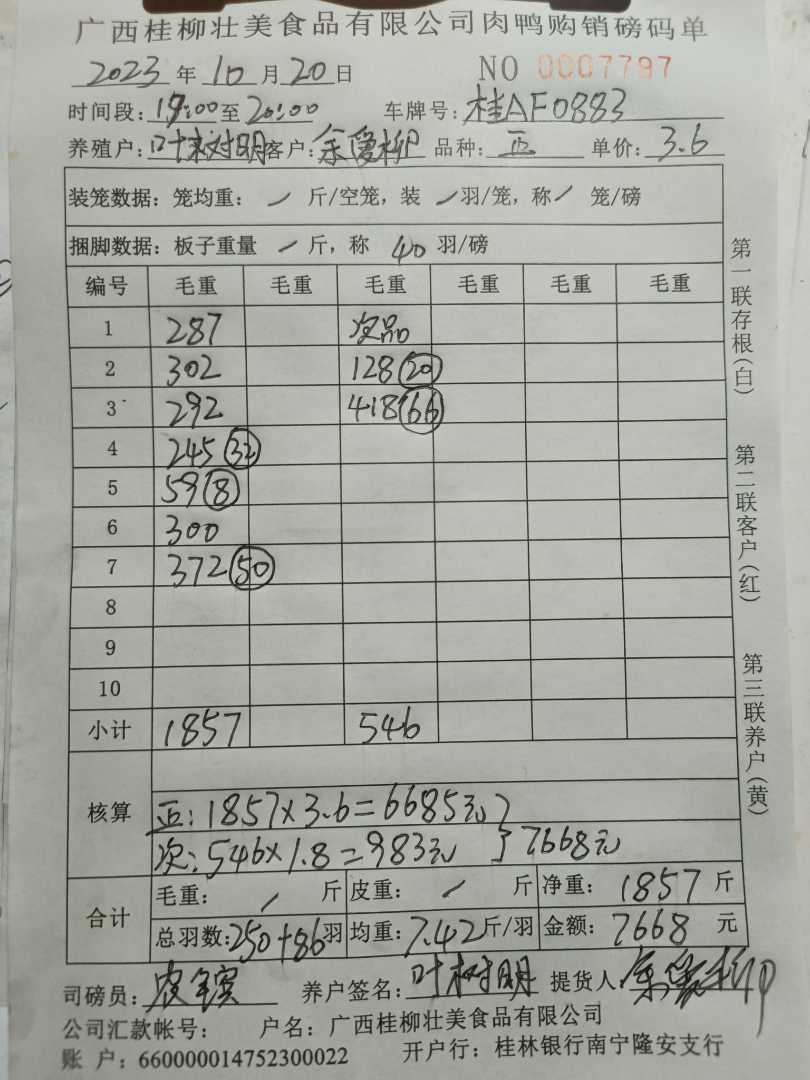 广西桂柳壮美食品有限公司肉鸭购销磅码单
2023年10月20日 NO 0007797
时间段:17:00至20:00 车牌号:桂AF0883
养殖户:叶树明 客户:余爱柳 品种:正 单价:3.6
装笼数据:笼均重:/斤/空笼,装/羽/笼,称/笼/磅
捆脚数据:板子重量/斤,称40羽/磅
编号 毛重 毛重 毛重 毛重 毛重 毛重
1 287 次品
2 302 128(20)
3 292 418(66)
4 245(32)
5 59(8)
6 300
7 372(50)
8
9
10
小计 1857 546
核算
正:1857×3.6=6685元
次:546×1.8=983元 7668元
合计
毛重:/斤 皮重:/斤 净重:1857斤
总羽数:250+86羽 均重:7.42斤/羽 金额:7668元
司磅员: 养户签名:叶树明 提货人:余爱柳
公司汇款帐号: 户名:广西桂柳壮美食品有限公司
账 户:660000014752300022 开户行:桂林银行南宁隆安支行
第一联存根(白)
第二联客户(红)
第三联养户(黄)